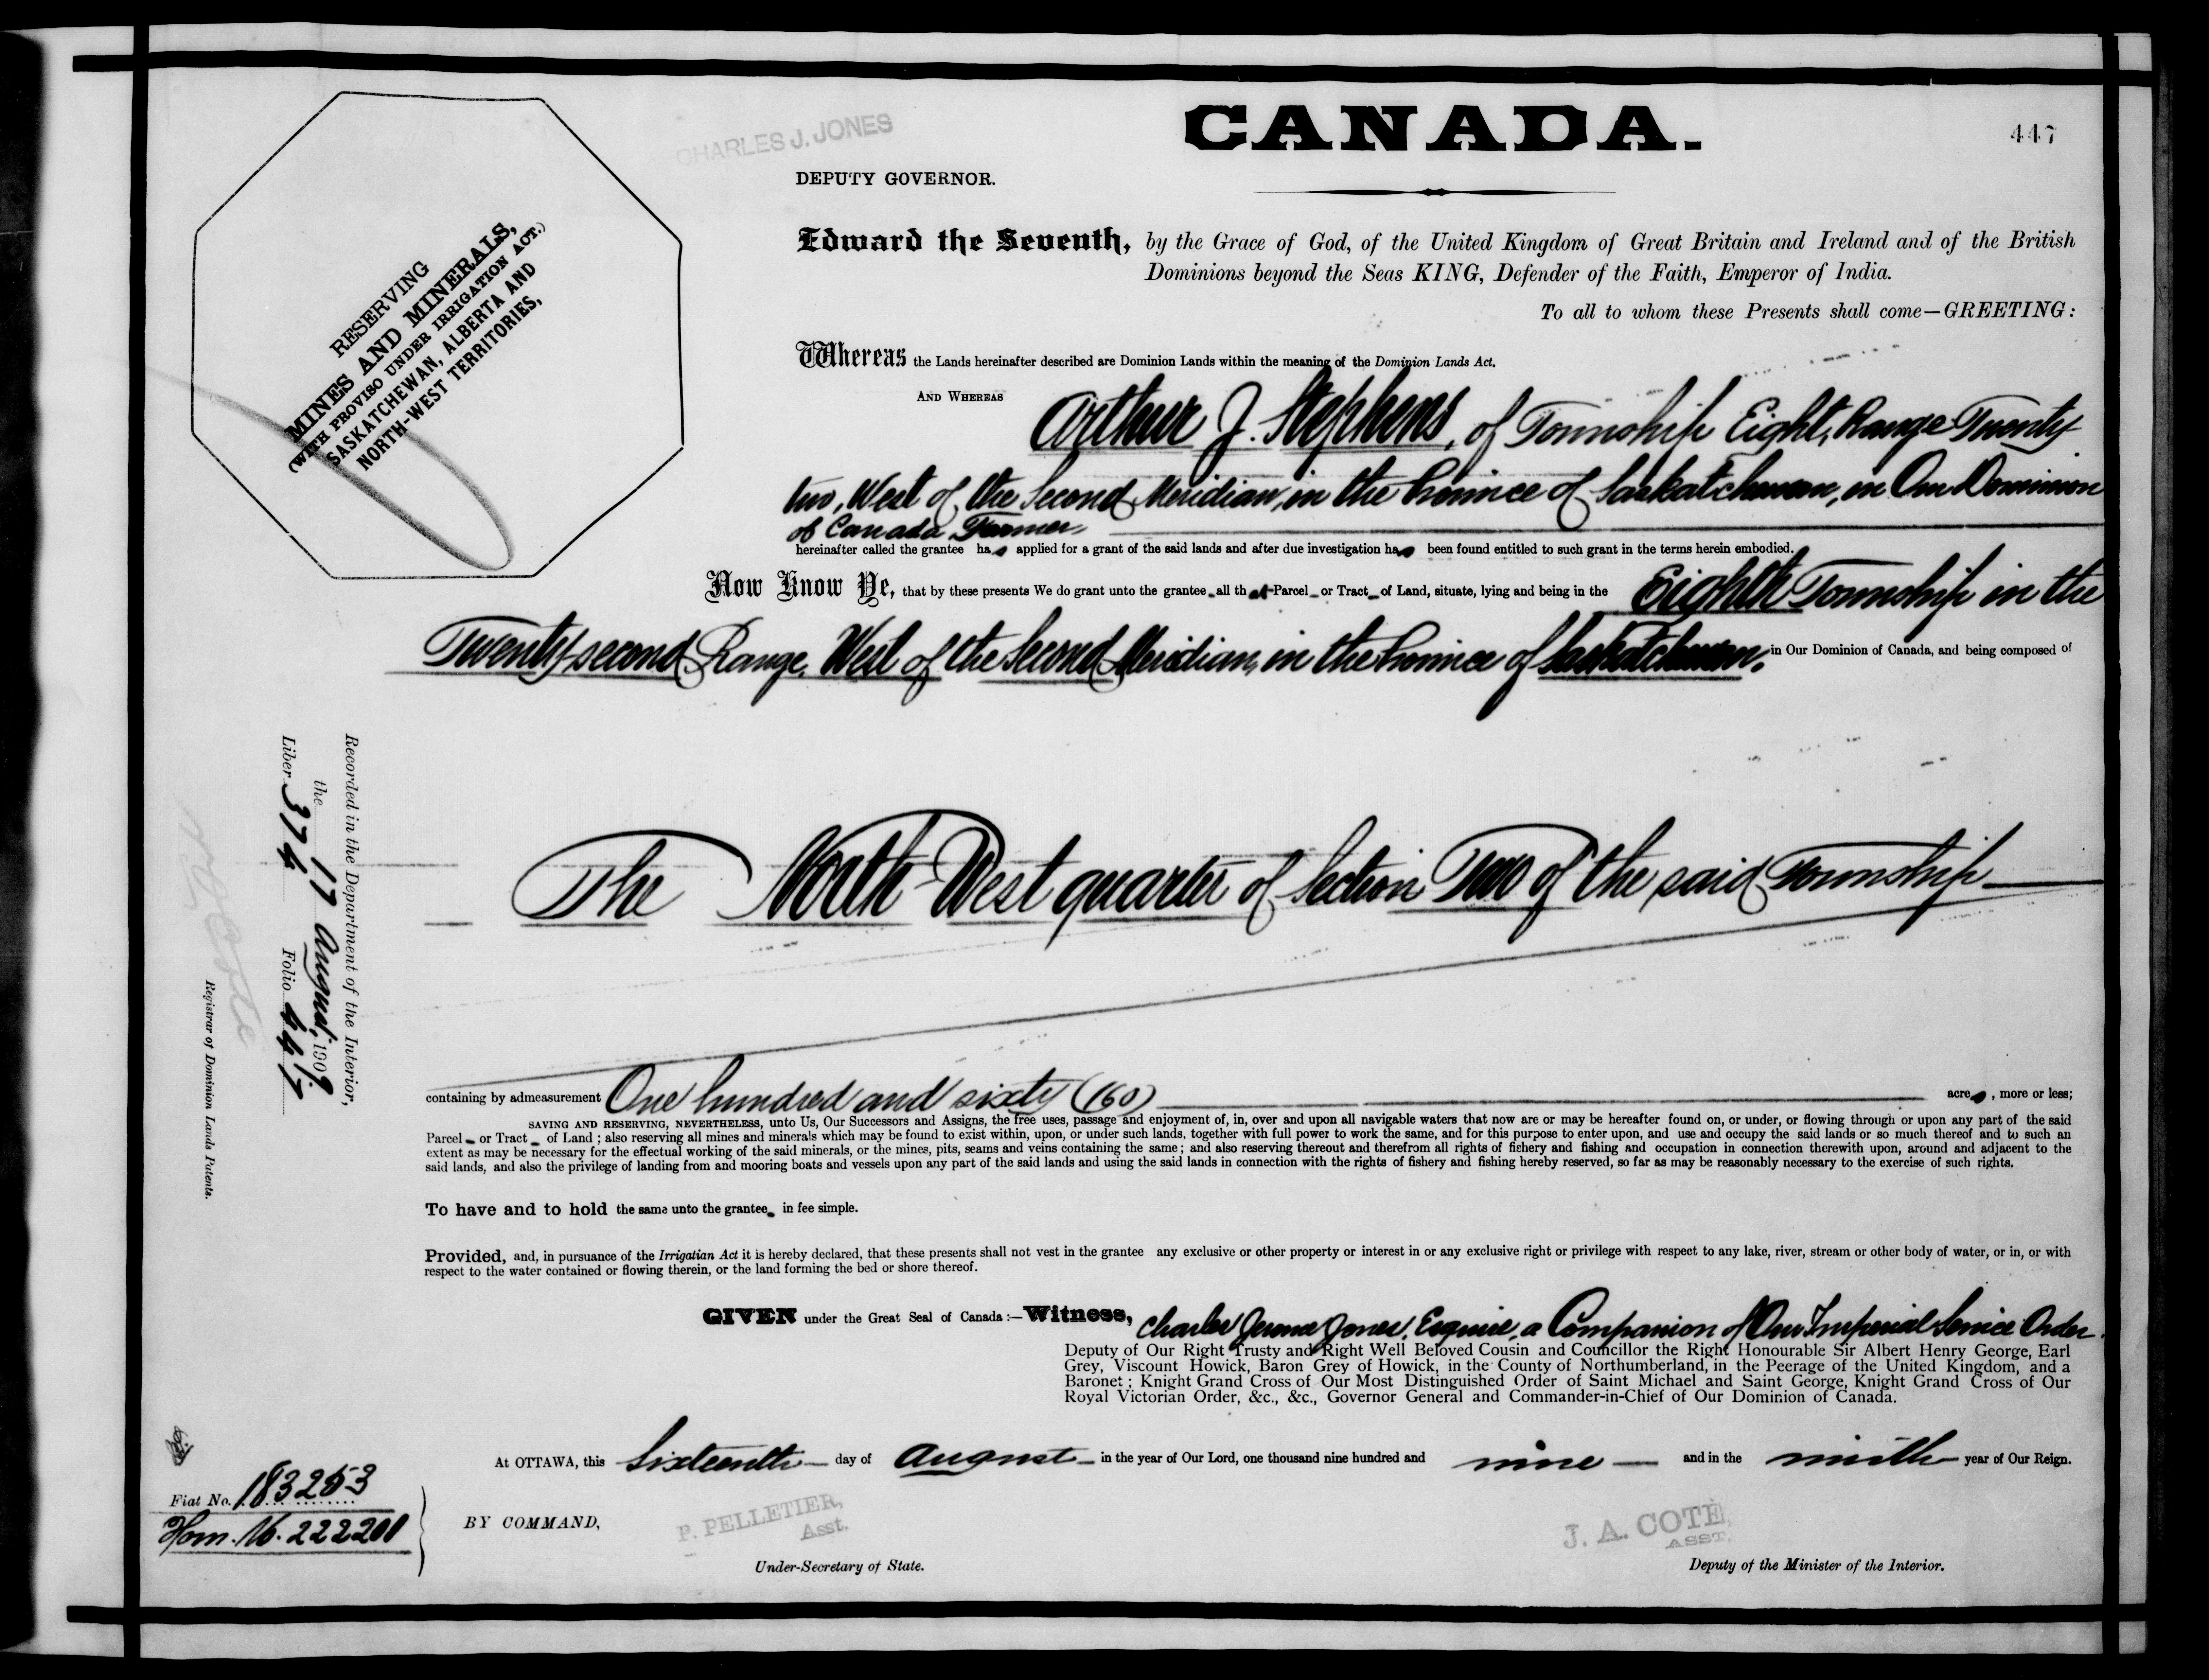 CHARLES J. JONES
CANADA.
447
DEPUTY GOVERNOR.
RESERVING
MINES AND MINERALS,
(WITH PROVISO UNDER IRRIGATION ACT.)
SASKATCHEWAN, ALBERTA AND
NORTH-WEST TERRITORIES,
Edward the Seventh, by the Grace of God, of the United Kingdom of Great Britain and Ireland and of the British
Dominions beyond the Seas KING, Defender of the Faith, Emperor of India.
To all to whom these Presents shall come—GREETING:
Whereas the Lands hereinafter described are Dominion Lands within the meaning of the Dominion Lands Act.
AND WHEREAS Arthur J. Stephens, of Township Eight, Range Twenty
two, West of the Second Meridian, in the Province of Saskatchewan, in Our Dominion
of Canada, Farmer,
hereinafter called the grantee has applied for a grant of the said lands and after due investigation has been found entitled to such grant in the terms herein embodied.
Now Know Ye, that by these presents We do grant unto the grantee all that Parcel or Tract of Land, situate, lying and being in the Eighth Township in the
Twenty-second Range, West of the Second Meridian, in the Province of Saskatchewan, in Our Dominion of Canada, and being composed of
The North-West quarter of Section Two of the said Township
containing by admeasurement One hundred and sixty (160) acres, more or less;
SAVING AND RESERVING, NEVERTHELESS, unto Us, Our Successors and Assigns, the free uses, passage and enjoyment of, in, over and upon all navigable waters that now are or may be hereafter found on, or under, or flowing through or upon any part of the said
Parcel or Tract of Land; also reserving all mines and minerals which may be found to exist within, upon, or under such lands, together with full power to work the same, and for this purpose to enter upon, and use and occupy the said lands or so much thereof and to such an
extent as may be necessary for the effectual working of the said minerals, or the mines, pits, seams and veins containing the same; and also reserving thereout and therefrom all rights of fishery and fishing and occupation in connection therewith upon, around and adjacent to the
said lands, and also the privilege of landing from and mooring boats and vessels upon any part of the said lands and using the said lands in connection with the rights of fishery and fishing hereby reserved, so far as may be reasonably necessary to the exercise of such rights.
To have and to hold the same unto the grantee in fee simple.
Provided, and, in pursuance of the Irrigatian Act it is hereby declared, that these presents shall not vest in the grantee any exclusive or other property or interest in or any exclusive right or privilege with respect to any lake, river, stream or other body of water, or in, or with
respect to the water contained or flowing therein, or the land forming the bed or shore thereof.
GIVEN under the Great Seal of Canada:—Witness, Charles Jerome Jones, Esquire, a Companion of Our Imperial Service Order
Deputy of Our Right Trusty and Right Well Beloved Cousin and Councillor the Right Honourable Sir Albert Henry George, Earl
Grey, Viscount Howick, Baron Grey of Howick, in the County of Northumberland, in the Peerage of the United Kingdom, and a
Baronet; Knight Grand Cross of Our Most Distinguished Order of Saint Michael and Saint George, Knight Grand Cross of Our
Royal Victorian Order, &c., &c., Governor General and Commander-in-Chief of Our Dominion of Canada.
At OTTAWA, this Sixteenth day of August in the year of Our Lord, one thousand nine hundred and nine and in the ninth year of Our Reign.
BY COMMAND,
P. PELLETIER,
Asst.
Under-Secretary of State.
J. A. COTÈ,
ASST.
Deputy of the Minister of the Interior.
Fiat No. 183253
Hom. No. 222201
Recorded in the Department of the Interior,
the 17 August, 1909
Liber 374 Folio 447
N O Coté
Registrar of Dominion Lands Patents.